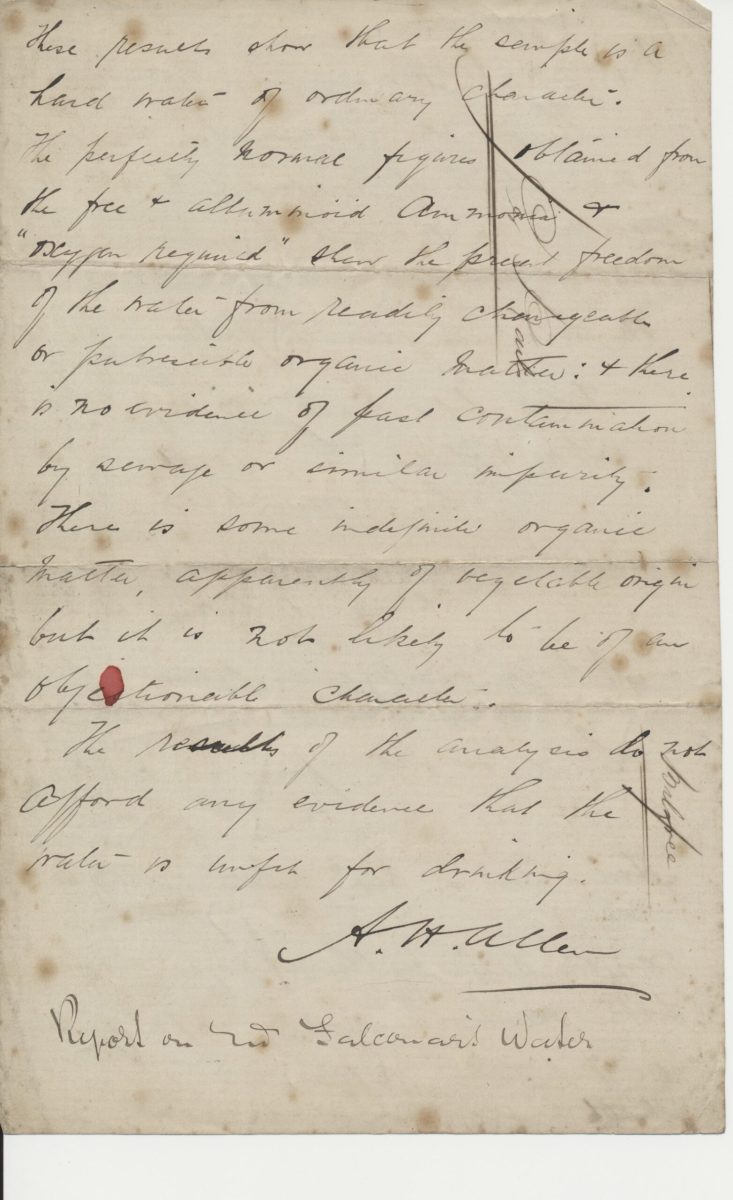 These results show that the sample is a
hard water of ordinary character.
The perfectly normal figures obtained from
the free & albuminoid Ammonia &
"oxygen required" show the present freedom
of the water from readily changeable
or putrescible organic matter: & there
is no evidence of past contamination
by sewage or similar impurity.
There is some indefinite organic
matter, apparently of vegetable origin
but it is not likely to be of an
objectionable character.
The results of the analysis do not
afford any evidence that the
water is unfit for drinking.
A. H. Allen
Report on Falconar's Water